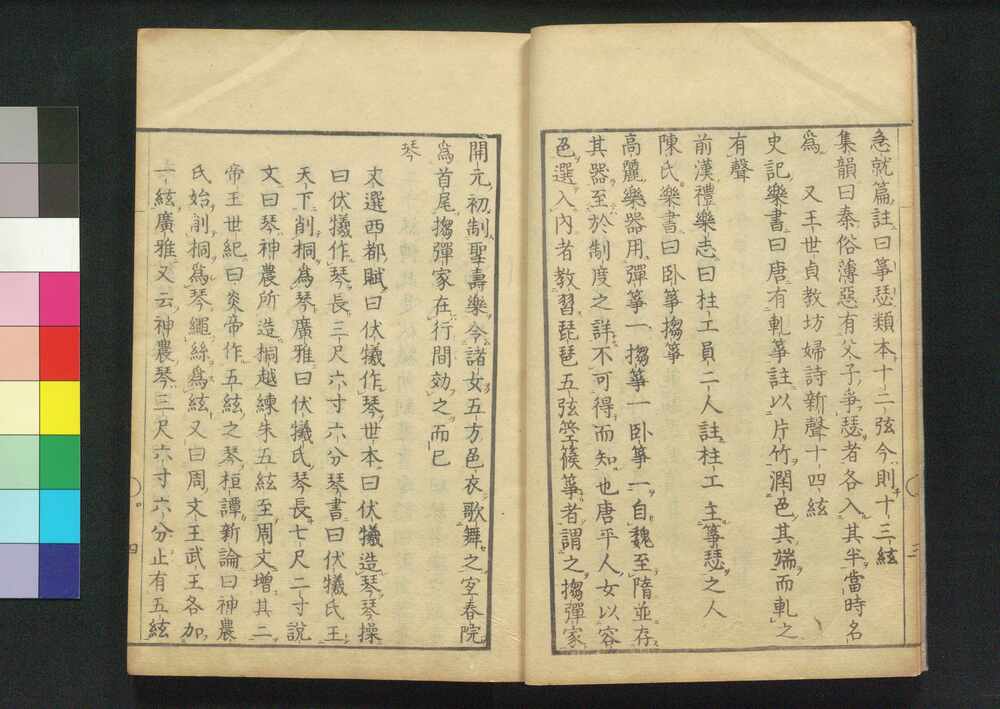 急就篇註曰箏瑟類本十二弦今則十三絃
集韻曰秦俗薄惡有父子爭瑟者各入其半當時名
爲　又王世貞教坊婦詩新聲十四絃
史記樂書曰唐有軋箏註以片竹潤色其端而軋之
有聲
前漢禮樂志曰柱工員二人註柱工主箏瑟之人
陳氏樂書曰卧箏搊箏
高麗樂器用彈箏一搊箏一卧箏一自魏至隋並存
其器至於制度之詳不可得而知也唐平人女以容
色選入內者教習琵琶五弦箜篌箏者謂之搊彈家
開元初制聖壽樂今諸女五方色衣歌舞之宜春院
爲首尾搊彈家在行間効之而已
琴
文選西都賦曰伏犧作琴世本曰伏犧造琴琴操
曰伏犧作琴長三尺六寸六分琴書曰伏犧氏王
天下削桐爲琴廣雅曰伏犧氏琴長七尺二寸說
文曰琴神農所造搊越練朱五絃至周文增其二
帝王世紀曰炎帝作五絃之琴桓譚新論曰神農
氏始削桐爲琴繩絲爲絃又曰周文王武王各加
一絃廣雅又云神農琴三尺六寸六分止有五絃
三
四